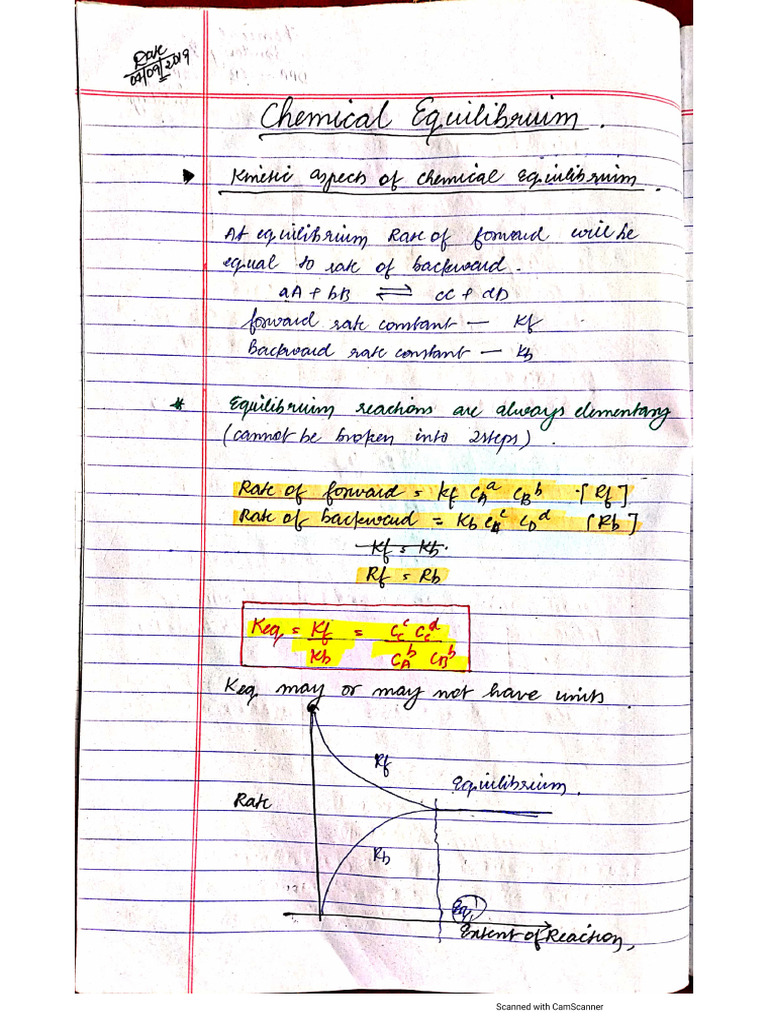 Date
04/09/2019
Chemical Equilibruim.
Kinetic aspects of chemical equilibruim.
At equilibrium Rate of forward will be
equal to rate of backward.
aA + bB ⇌ cC + dD
forward rate constant — Kf
Backward rate constant — Kb
* Equilibrium reactions are always elementary
(cannot be broken into 2 steps).
Rate of forward = Kf C_A^a C_B^b [Rf]
Rate of backward = Kb C_C^c C_D^d [Rb]
Kf = Kb.
Rf = Rb
Keq = Kf/Kb = C_C^c C_C^d / C_A^b C_B^b
Keq may or may not have units.
Rf
Equilibrium.
Rate
Rb
Eq
Extent of Reaction,
Scanned with CamScanner